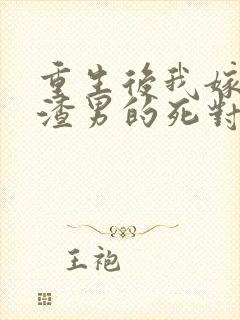 重生後我嫁
渣男的死對
王袍